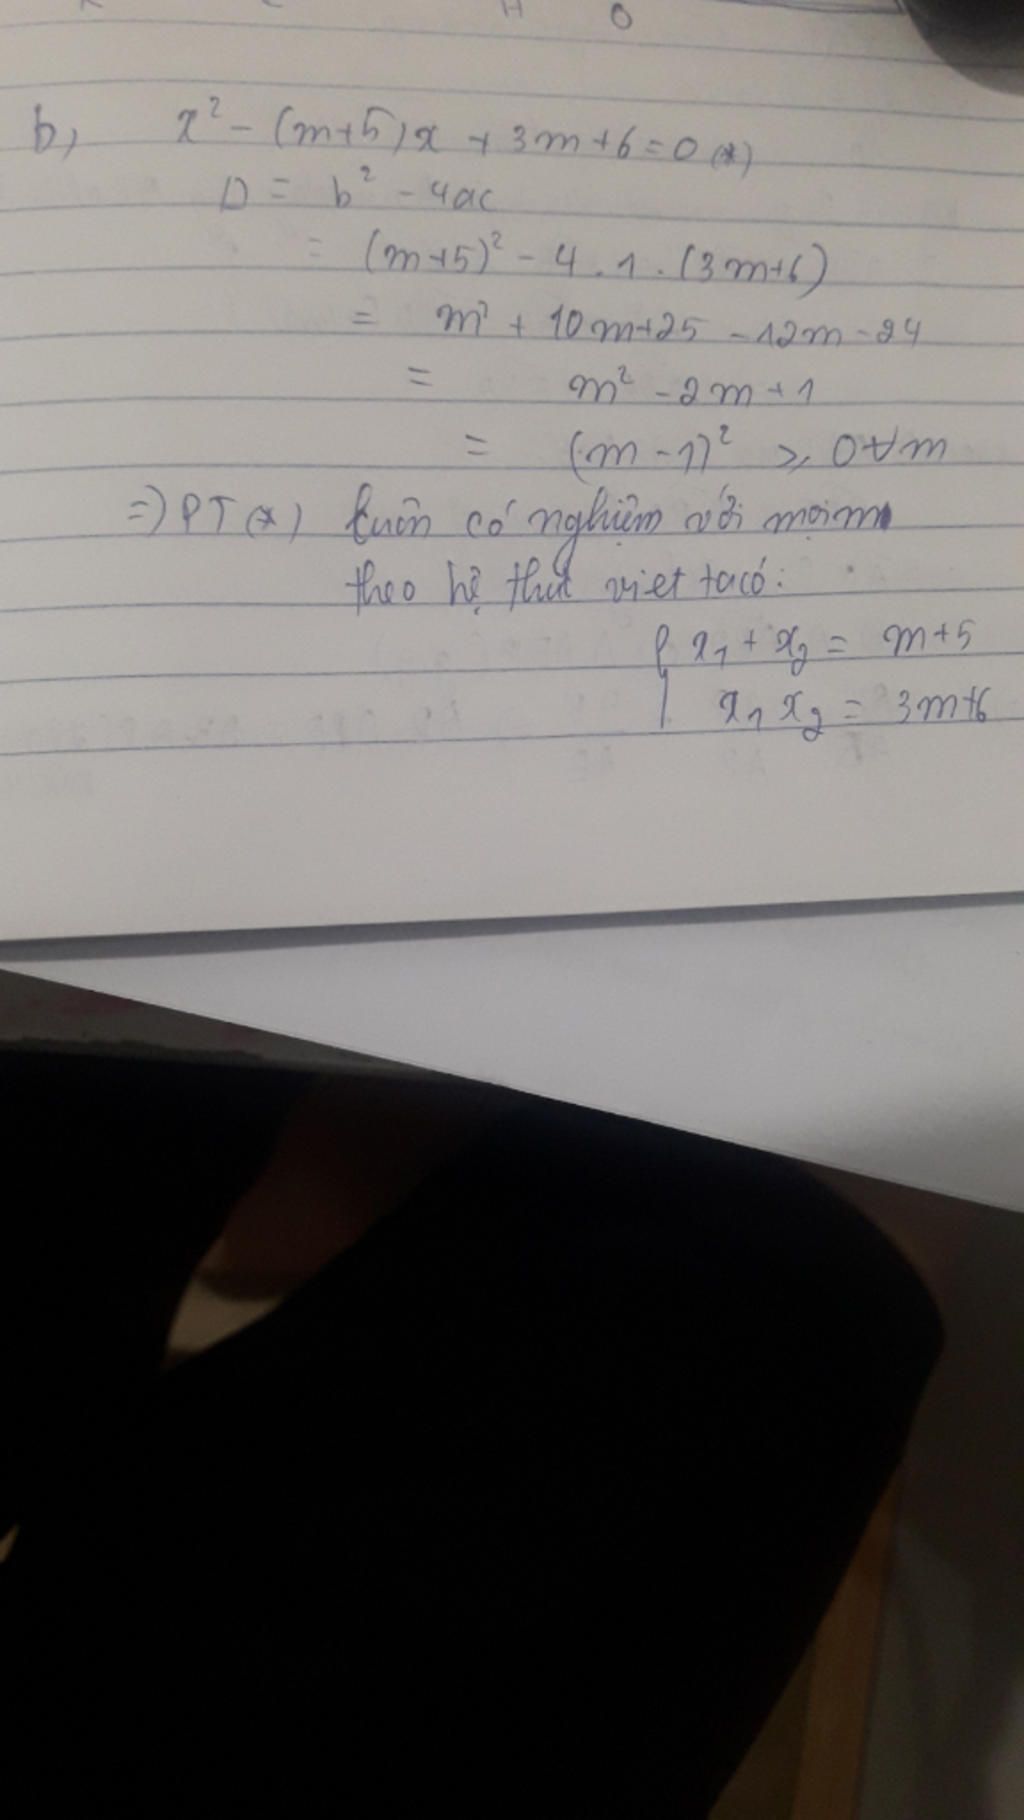 H O
b, x² - (m+5)x + 3m+6 = 0 (*)
Δ = b² - 4ac
= (m+5)² - 4 . 1 . (3m+6)
= m² + 10m+25 - 12m - 24
= m² - 2m + 1
= (m - 1)² ≥ 0 ∀m
=> PT (*) luôn có nghiệm với mọi m
theo hệ thức viet ta có:
{ x₁ + x₂ = m+5
x₁ x₂ = 3m+6